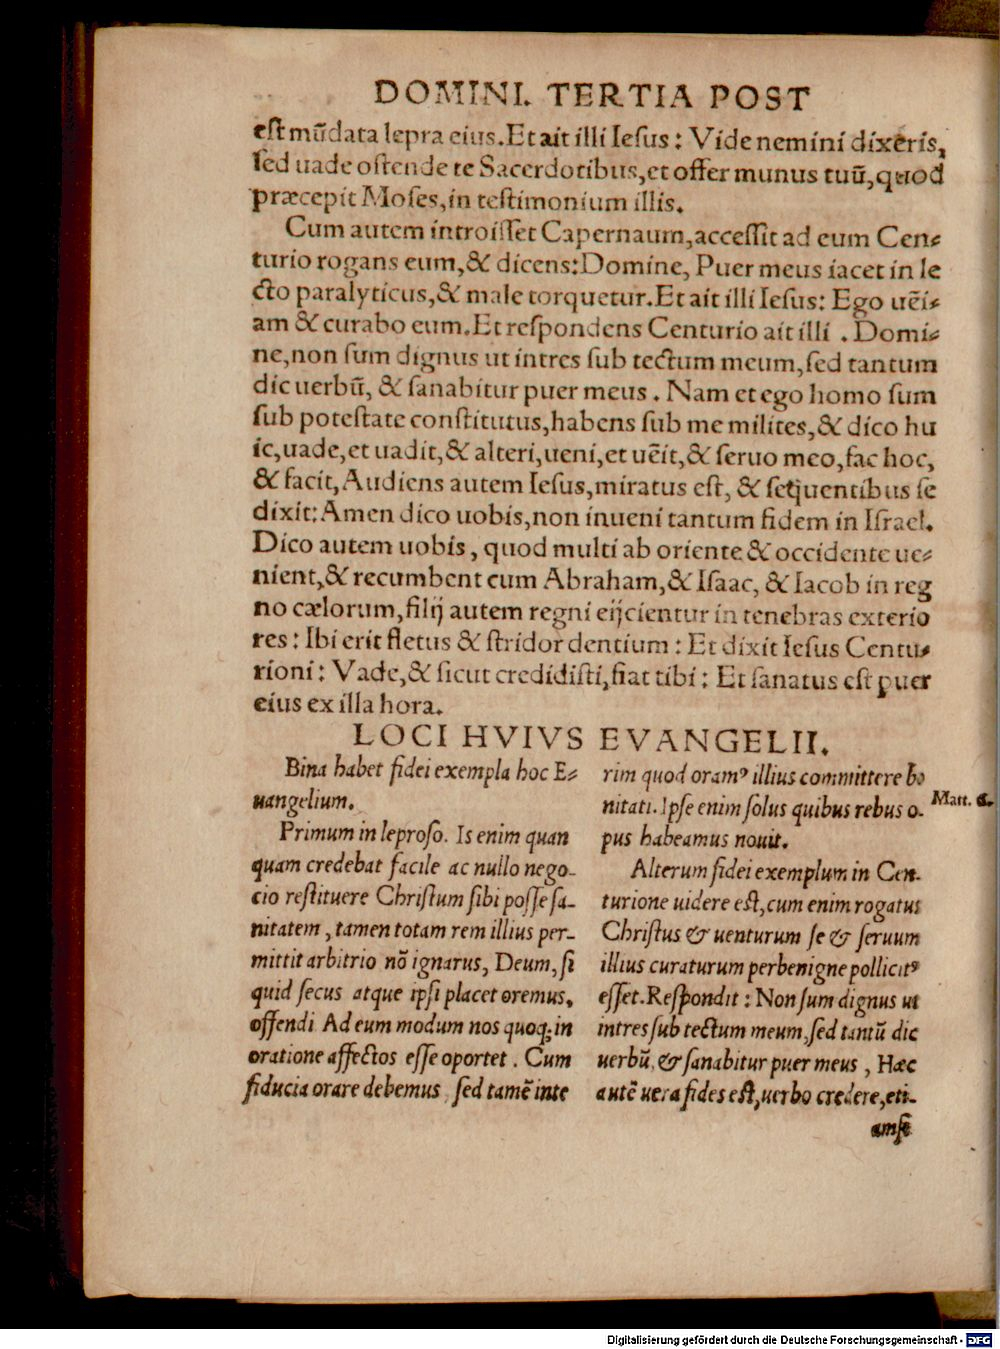 DOMINI. TERTIA POST
est mūdata lepra eius. Et ait illi Iesus: Vide nemini dixeris,
sed uade ostende te Sacerdotibus, et offer munus tuū, quod
præcepit Moses, in testimonium illis.
Cum autem introisset Capernaum, accessit ad eum Cen⸗
turio rogans eum, & dicens: Domine, Puer meus iacet in le
cto paralyticus, & male torquetur. Et ait illi Iesus: Ego uēi⸗
am & curabo eum. Et respondens Centurio ait illi . Domi⸗
ne, non sum dignus ut intres sub tectum meum, sed tantum
dic uerbū, & sanabitur puer meus . Nam et ego homo sum
sub potestate constitutus, habens sub me milites, & dico hu
ic, uade, et uadit, & alteri, ueni, et uēit, & seruo meo, fac hoc,
& facit, Audiens autem Iesus, miratus est, & sequentibus se
dixit: Amen dico uobis, non inueni tantum fidem in Israel.
Dico autem uobis, quod multi ab oriente & occidente ue⸗
nient, & recumbent cum Abraham, & Isaac, & Iacob in reg
no cælorum, filij autem regni eijcientur in tenebras exterio
res: Ibi erit fletus & stridor dentium: Et dixit Iesus Centu⸗
rioni: Vade, & sicut credidisti, fiat tibi: Et sanatus est puer
eius ex illa hora.
LOCI HVIVS EVANGELII.
Bina habet fidei exempla hoc E⸗
uangelium.
Primum in leproso. Is enim quan
quam credebat facile ac nullo nego-
cio restituere Christum sibi posse sa-
nitatem, tamen totam rem illius per-
mittit arbitrio nō ignarus, Deum, si
quid secus atque ipsi placet oremus,
offendi Ad eum modum nos quoq; in
oratione affectos esse oportet. Cum
fiducia orare debemus, sed tamē inte
rim quod oramꝰ illius committere bo
nitati. Ipse enim solus quibus rebus o-
pus habeamus nouit.
Matt. 6.
Alterum fidei exemplum in Cen-
turione uidere est, cum enim rogatus
Christus & uenturum se & seruum
illius curaturum perbenigne pollicitꝰ
esset. Respondit: Non sum dignus ut
intres sub tectum meum, sed tantū dic
uerbū, & sanabitur puer meus, Hæc
autē uera fides est, uerbo credere, eti-
amsi
Digitalisierung gefördert durch die Deutsche Forschungsgemeinschaft - DFG